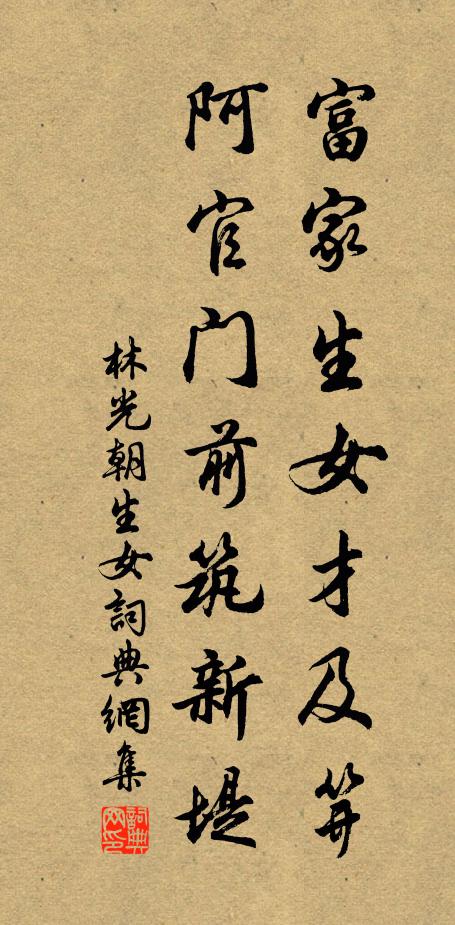 富家生女才及笄
阿官门前筑新堤
林光朝生女詞典網集
詞典网印